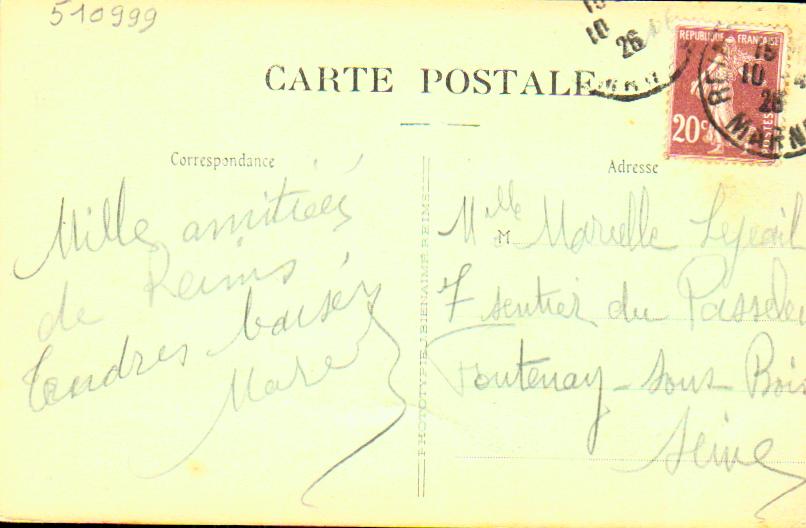 510999
CARTE POSTALE
REPUBLIQUE FRANÇAISE
20c
POSTES
10
26
MARNE
10
26
MARNE
Correspondance
Mille amitiées
de Reims
Tendres baisers
PHOTOTYPIE J. BIENAIMÉ, REIMS
Adresse
M
Mlle
7 sentier du
Fontenay-sous-Bois
Seine